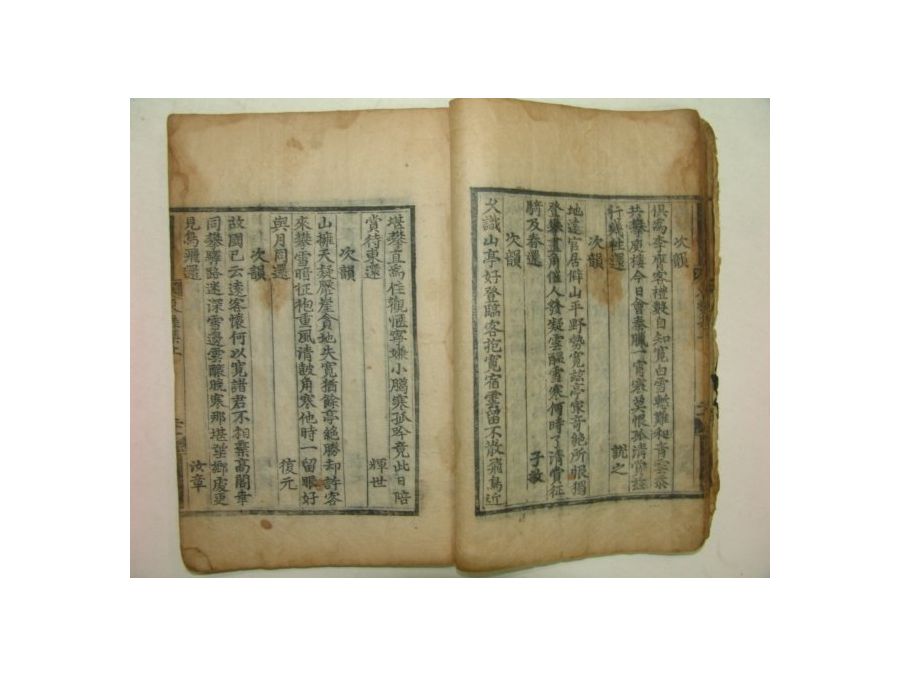 次韻
俱為李膺客禮數自知寬白雪慙難和青雲忝
共攀 樓今日會 臘一宵寒莫恨孤清賞
行 社還 說之
次韻
地遠官居僻山平野勢寬 亭 奇絶所眼
登攀畫角催人發凝雲釀雪寒何時了清賞征
騎及春還 子敬
次韻
久識山亭好登臨客抱寬宿雲留不散飛鳥近
堪攀直為佳觀愜寧嫌小 寒孤吟竟此日陪
賞待東還 輝世
次韻
山擁天疑 崖貪地失寬猶餘亭絶勝却詩客
來攀雪暗征袍重風清皷角寒他時一留眼好
與月同還 復元
次韻
故國已云遠客懷何以寬諸君不相棄高閣幸
同攀驛路迷深雪邊雲釀晚寒那堪望鄉處更
見鳥 還 汝章